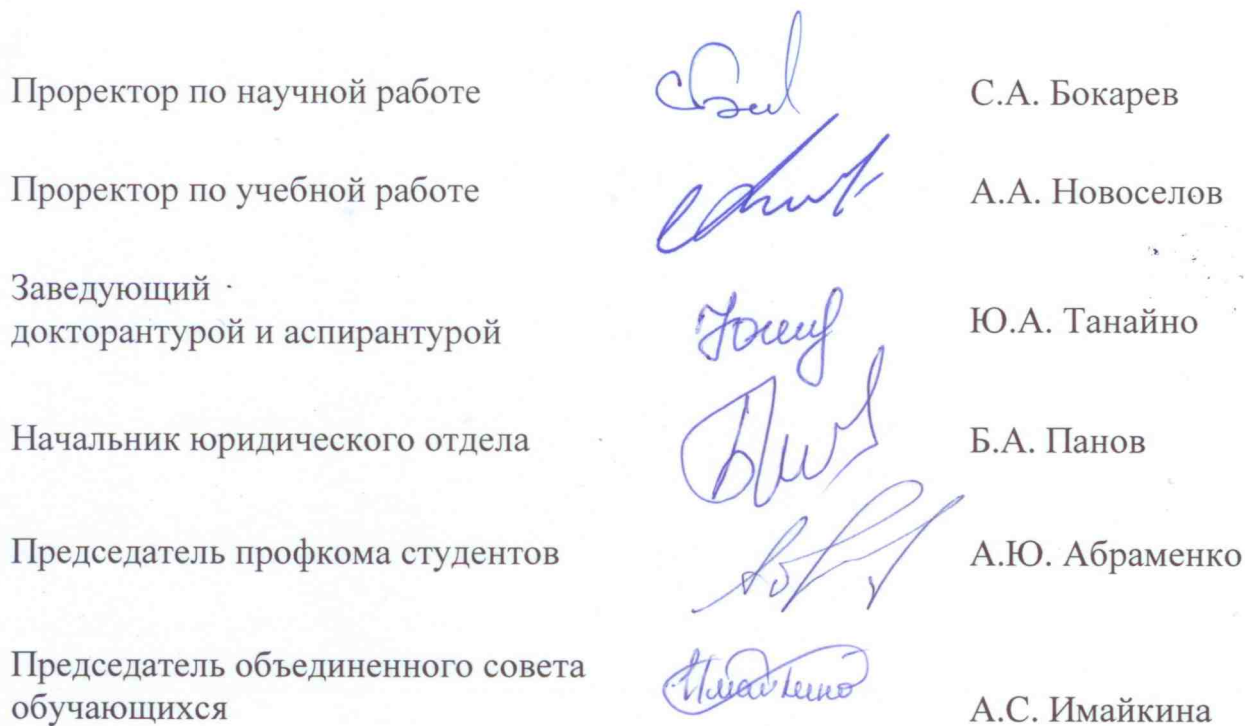 Проректор по научной работе С.А. Бокарев
Проректор по учебной работе А.А. Новоселов
Заведующий
докторантурой и аспирантурой Ю.А. Танайно
Начальник юридического отдела Б.А. Панов
Председатель профкома студентов А.Ю. Абраменко
Председатель объединенного совета
обучающихся А.С. Имайкина